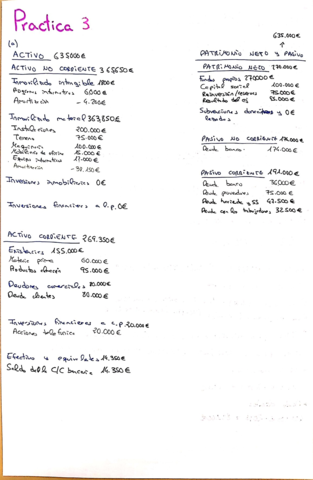 Practica 3
(a)
ACTIVO 635000€
ACTIVO NO CORRIENTE 365650€
Inmovilizado intangible 1800€
Programas informaticos 6000€
Amortización - 4.200€
Inmovilizado material 363,850€
Instalaciones 200.000€
Terreno 75.000€
Maquinaria 100.000€
Mobiliario de oficina 15.000€
Equipos informaticos 12.000€
Amortización - 38.150€
Inversiones inmobiliarias 0€
Inversiones financieras a l.p. 0€
ACTIVO CORRIENTE 269.350€
Existencias 155.000€
Materia prima 60.000€
Productos 95.000€
Deudores comerciales 80.000€
Deuda clientes 80.000€
Inversiones financieras a c.p. 20.000€
Acciones telefónica 20.000€
Efectivo y equivalentes 14.350€
Saldo C/C bancaria 14.350€
635.000€
↑
PATRIMONIO NETO Y PASIVO
PATRIMONIO NETO 270.000€
Fondos propios 270000€
Capital social 100.000€
75.000€
Resultado del 95.000€
Subvenciones, donaciones y 0€
legados
PASIVO NO CORRIENTE 174.000€
Deuda banco 174.000€
PASIVO CORRIENTE 191.000€
Deuda banco 36000€
Deuda proveedores 75.000€
Deuda hacienda y SS 47.500€
Deuda con los trabajadores 32.500€